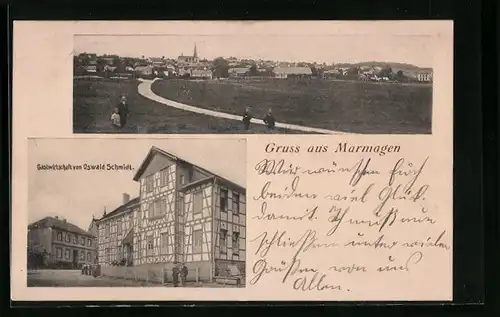 Gruss aus Marmagen
Gastwirtschaft von Oswald Schmidt.
Wir wünschen Euch
beiden viel Glück
damit. Ich muß nun
schließen unter vielen
Grüßen von uns
Allen.